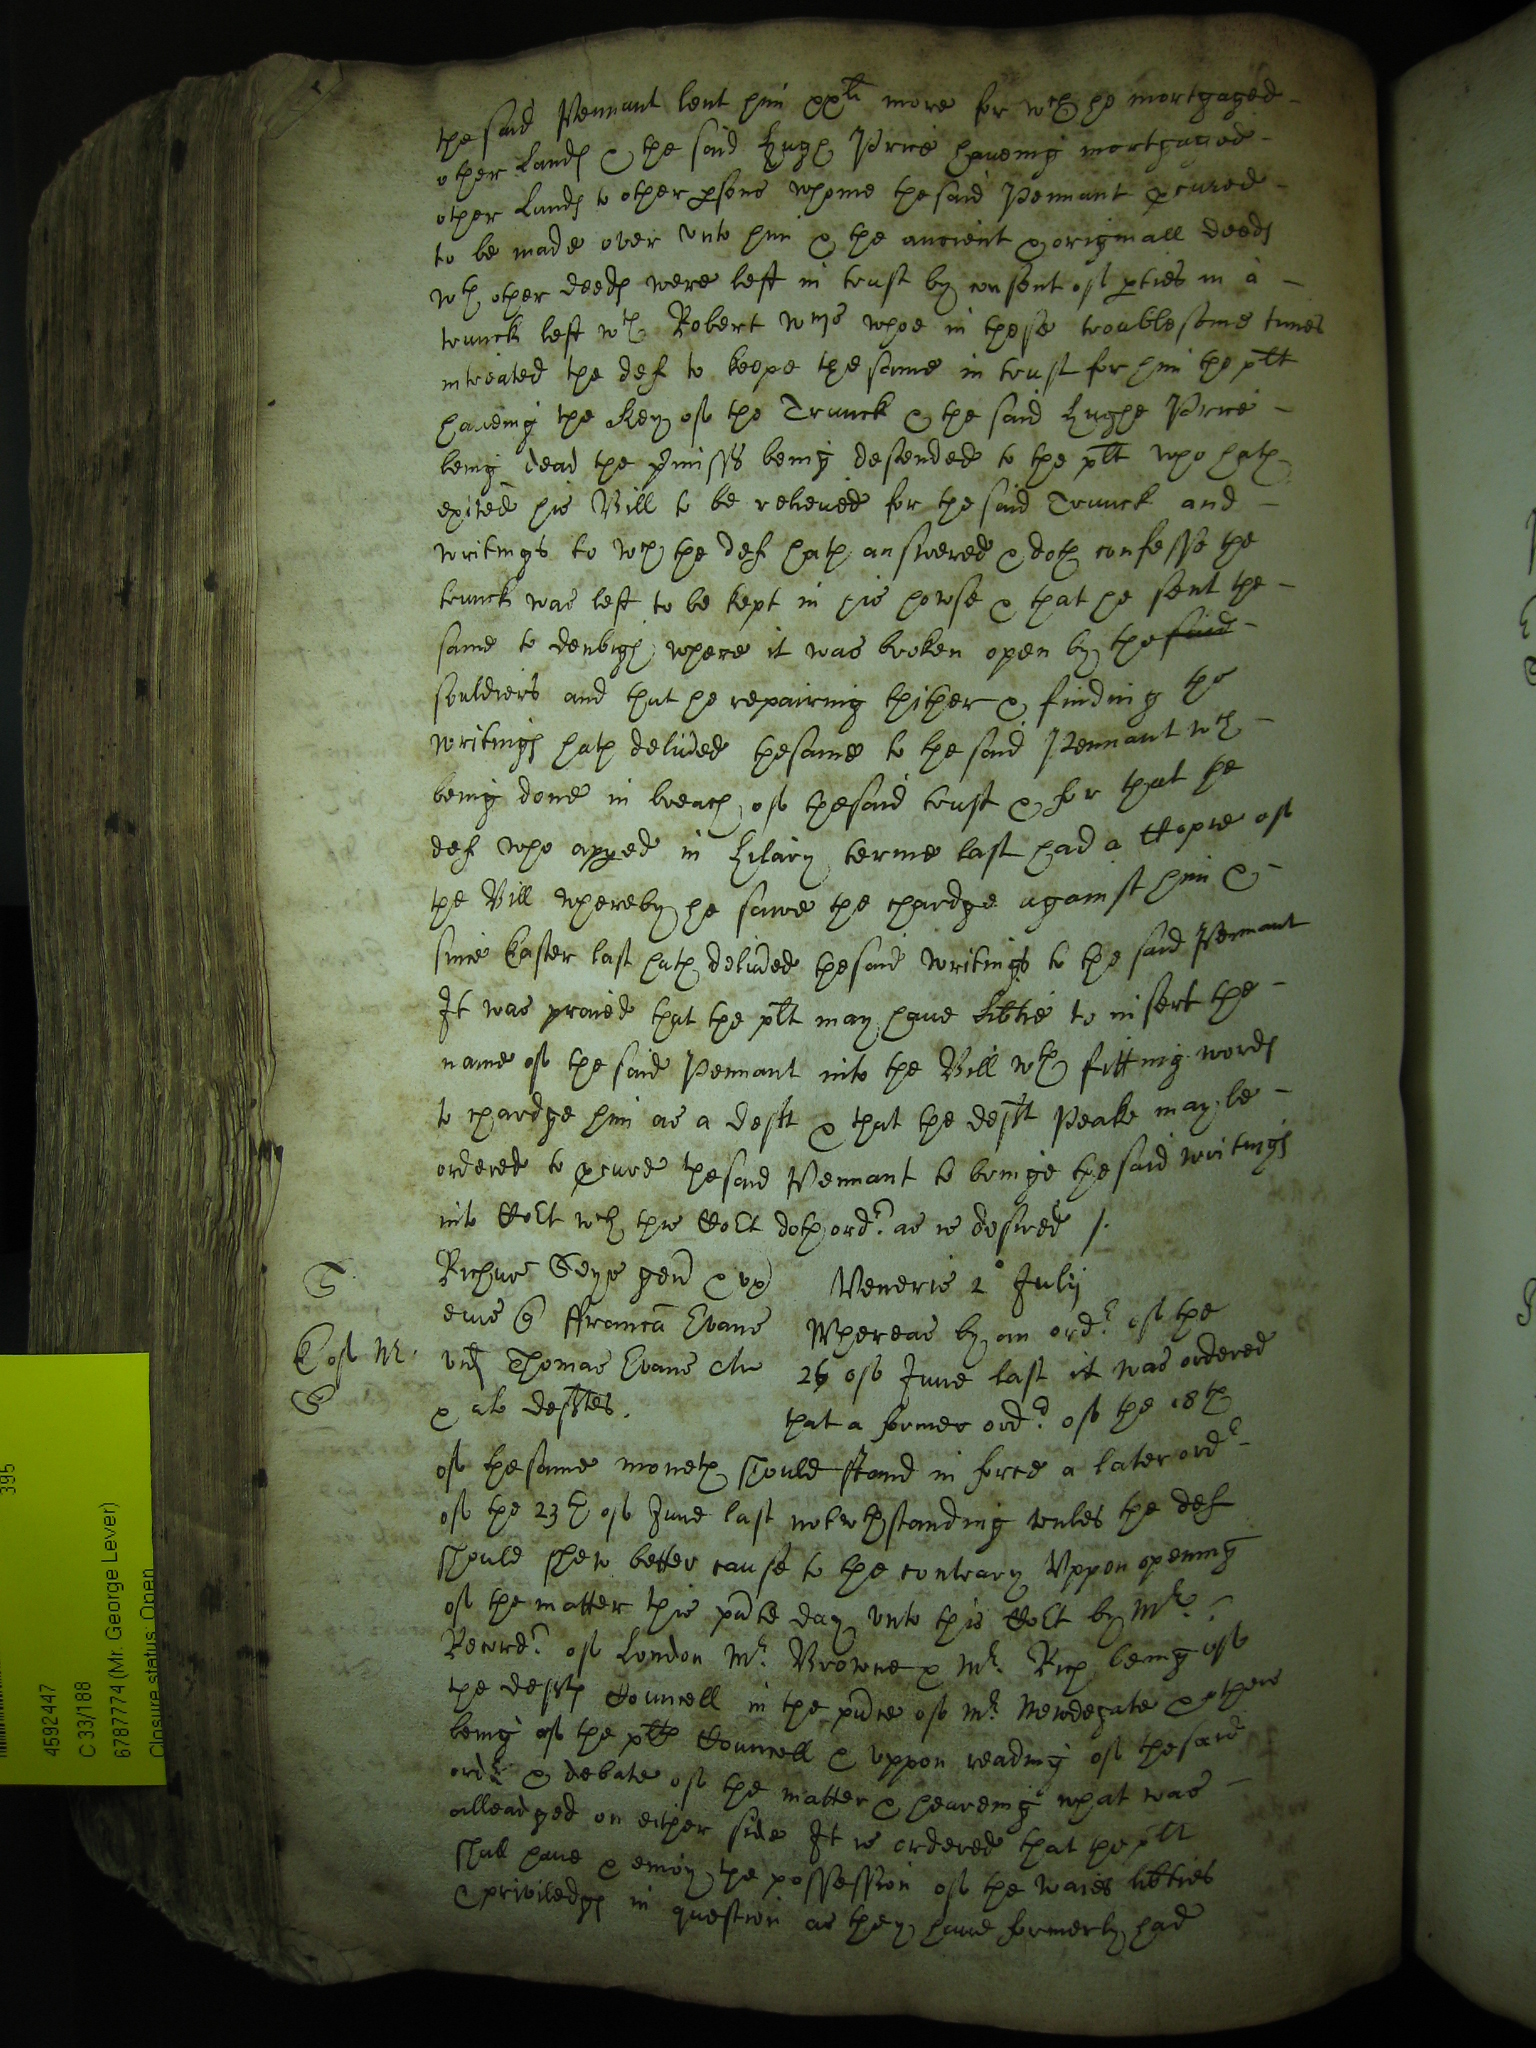 the said Pennant lent him xxli more for wch he mortgaged
other Lands & the said Hugh Price haueing mortgaged
other Lands to other psons whome the said Pennant pcured
to be made over vnto him & the ancient & originall deeds
wth other deeds were left in trust by consent of pties in a
trunck left wth Robert Wms whoe in these troublesome times
intreated the def to keepe the same in trust for him the plt
haueing the Key of the Trunck & the said Hughe Price
being dead the pmisss being descended to the plt who hath
exited his Bill to be releiued for the said Trunck and
writings to wch the def hath answered & doth confesse the
trunck was left to be kept in his howse & that he sent the
same to denbigh where it was broken open by the said
souldiers and that he repairing thither & finding the
writings hath deliued the same to the said Pennant wch
being done in breach of the said trust & for that the
def who apped in Hilary terme last had a Coppie of
the Bill whereby he sawe the chardge against him &
since Easter last hath deliued the said writings to the said Pennant
It was praied that the plt may haue libtie to insert the
name of the said Pennant into the Bill wth fitting words
to chardge him as a deft & that the deft Peake may be
ordered to pcure the said Pennant to bringe the said writings
into Cort wch this Cort doth ordr as is desired /.
Richus Seys gen & vx
eius Q Francu Evans
vid Thomas Evans
& al deftes.
T
E of M
S
Veneris 2o July
Whereas by an ordr of the
26 of June last it was ordered
that a former ordr of the 18th
of the same moneth should stand in force a later ordr
of the 23th of June last notwthstanding vnles the def
should shew better cause to the contrary Vppon opening
of the matter this pnte day vnto this Cort by Mr
Recordr of London Mr Browne & Mr Rich being of
the defts Councell in the pnce of Mr Newdegate & others
being of the plts Councell & vppon reading of the said
ordr & debate of the matter & heareing what was
alleadged on either side It is ordered that the plt
shall haue & enioy the possession of the waies libties
& priviledgs in question as they haue formerly had
395
4592447
C 33/188
6787774 (Mr. George Lever)
Closure status: Open